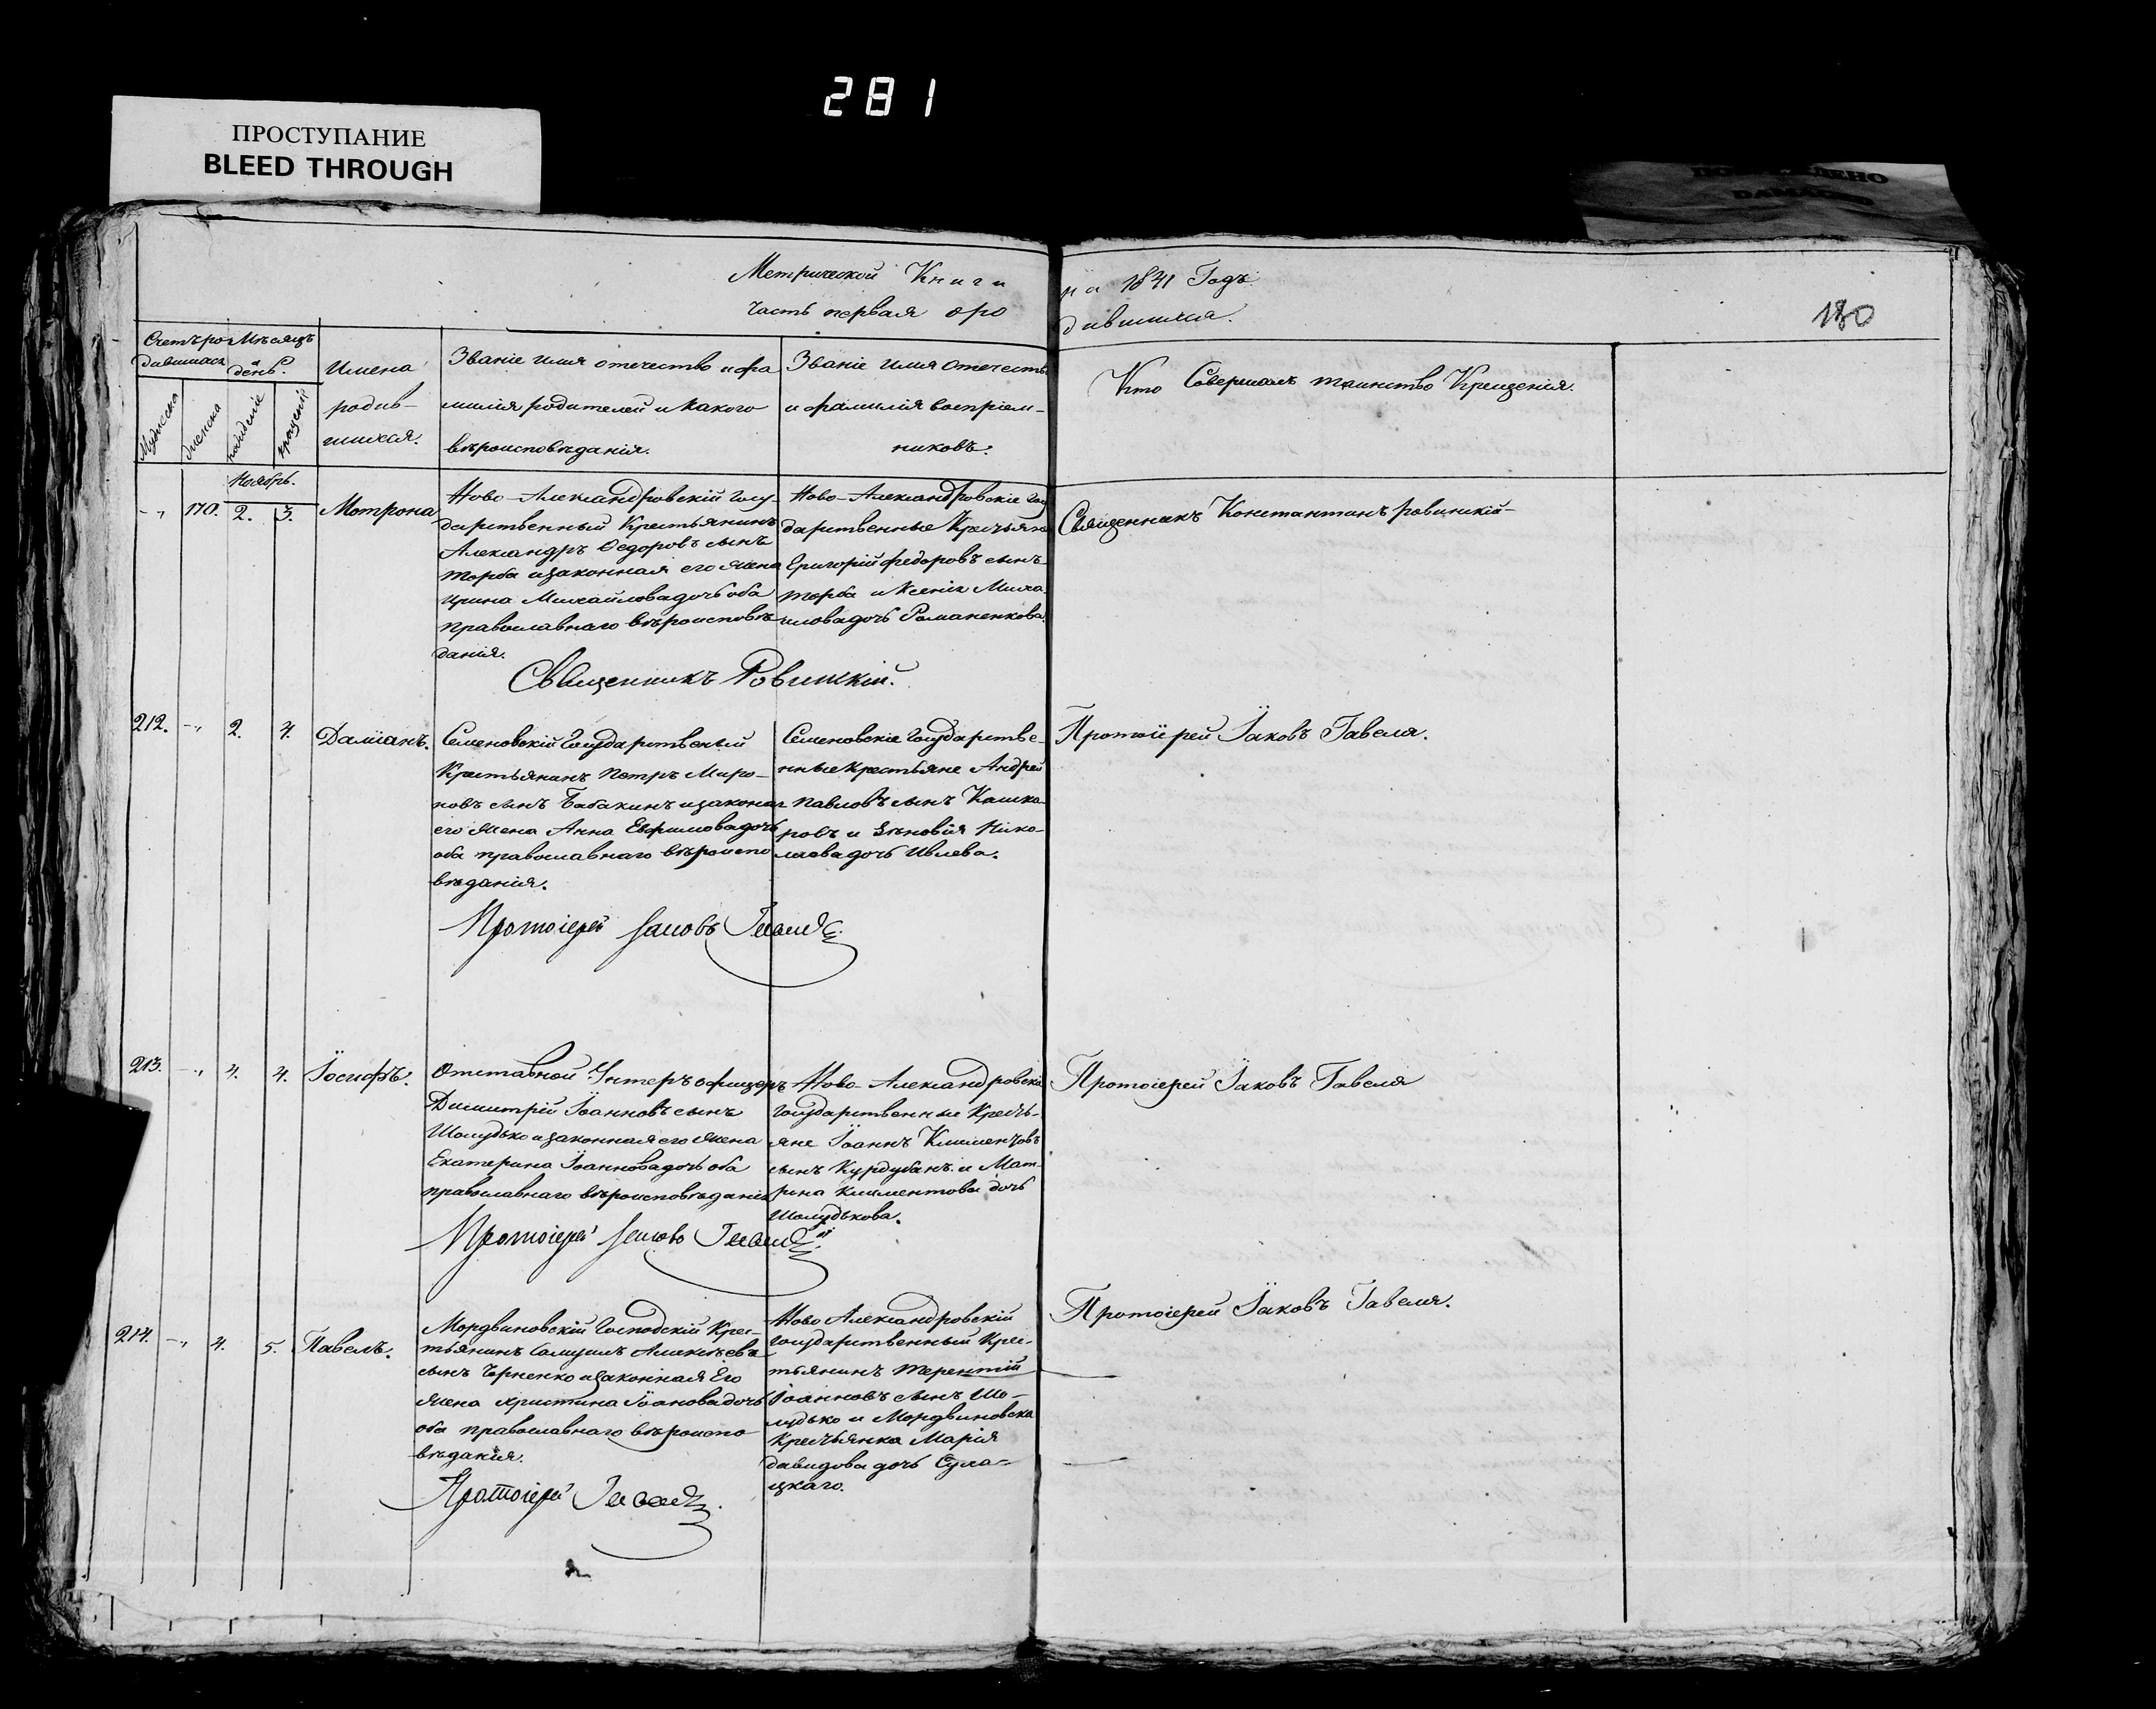 281
ПРОСТУПАНИЕ
BLEED THROUGH
Метрической Книги на 1841 Годъ.
Часть первая о родившихся.
180
Счетъ родившихся
Мѣсяцъ и день.
Имена родившихся.
Званіе имя отечество и фамилія родителей и какого вѣроисповѣданія.
Званіе имя отечество и фамилія воспріемниковъ.
Кто Совершалъ таинство Крещенія.
Мужеска
женска
рожденіе
крещеній
Ноябрь.
-„ 170. 2. 3. Мотрона
Ново-Александровскій Госу-
дарственный Крестьянинъ
Александръ Федоровъ сынъ
Торба и законная его жена
Ирина Михайлова дочь оба
Православнаго вѣроисповѣ
данія.
Ново-Александровскіе Госу
дарственные Крестьяне
Григорій Федоровъ сынъ
Торба и Ксенія Миха
илова дочь Романенкова.
Священникъ Константинъ Ровинскій
Священникъ Ровинскій.
212. -„ 2. 4. Даміанъ.
Семеновскій Государственый
Крестьянинъ Петръ Миро-
новъ сынъ Бабакинъ и законая
его жена Анна Евфимова дочь
оба православнаго вѣроиспо
вѣданія.
Семеновскіе Государстве-
нные крестьяне Андрей
Павловъ сынъ Кашка-
ровъ и Зѣновія Нико-
лаева дочь Ивлева.
Протоіерей Іаковъ Гавеля.
Протоіерей Іаковъ Гавеля
213. -„ 4. 4. Іосифъ.
Отставной Унтеръ офицеръ
Димитрій Іоанновъ сынъ
Шолудько и законная его жена
Екатерина Іоаннова дочь оба
православнаго вѣроисповѣданія
Ново-Александровскіе
Государственные Кресть-
яне Іоаннъ Климентовъ
сынъ Курдубанъ и Мат-
рина Климентова дочь
Шолудькова.
Протоіерей Іаковъ Гавеля
Протоіерей Іаковъ Гавеля
214. -„ 4. 5. Павелъ.
Мордвиновскій Господскій Крес-
тьянинъ Самуилъ Алексѣевъ
сынъ Черненко и законная Его
жена Христина Іоанова дочь
оба православнаго вѣроиспо
вѣданія.
Ново Александровскій
Государственный Крес-
тьянинъ Терентій
Іоанновъ сынъ Шо-
лудько и Мордвиновска
Крестьянка Марія
Давидова дочь
Протоіерей Іаковъ Гавеля.
Протоіерей Гавеля